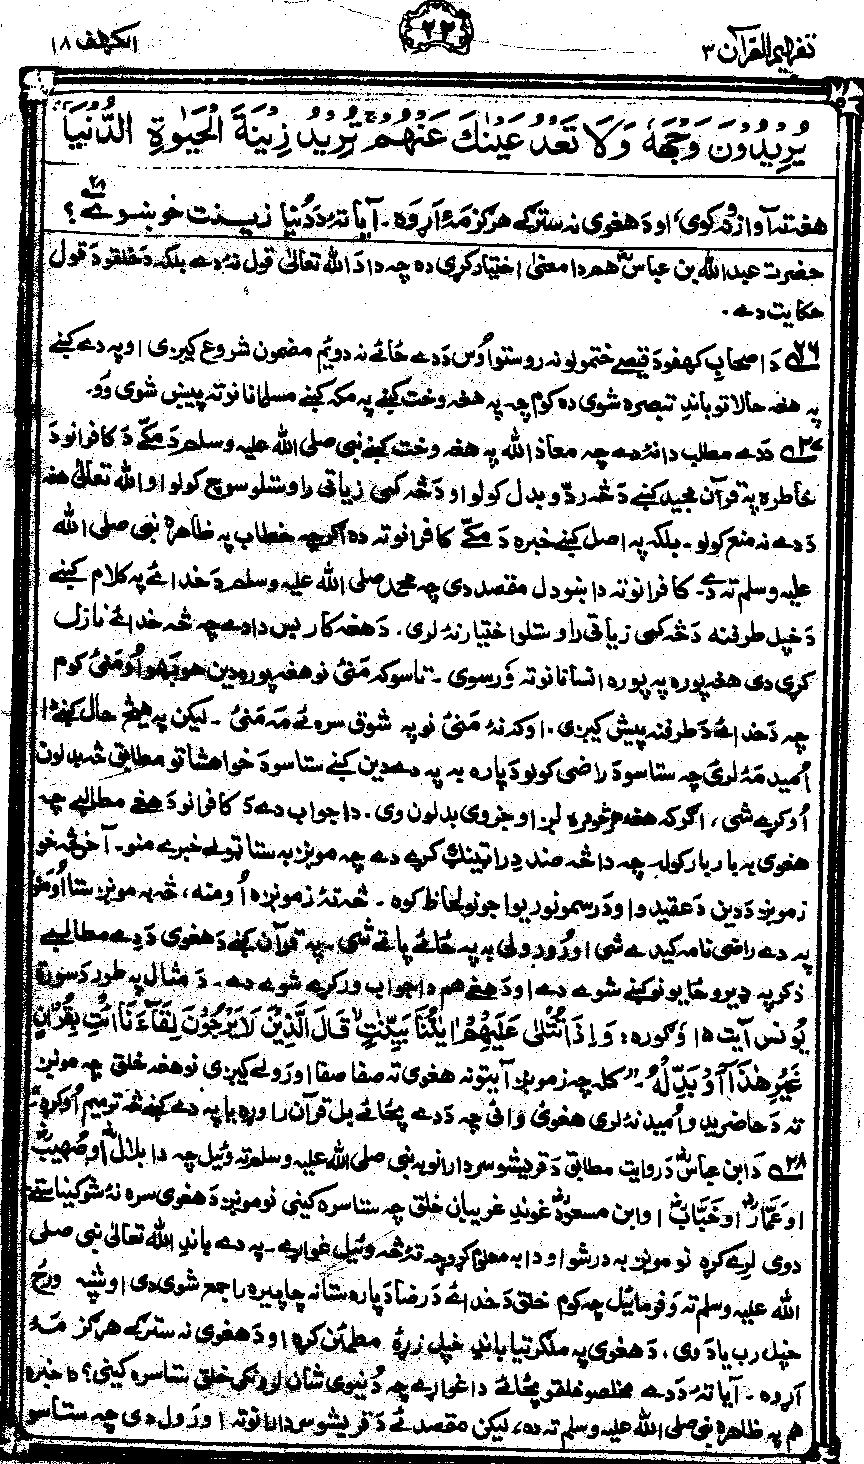 تفهیم القرآن ۳
۲۲
الکهف ۱۸
يُرِيدُونَ وَجْهَهٗ وَلَا تَعْدُ عَيْنٰكَ عَنْهُمْ ۚ تُرِيْدُ زِيْنَةَ الْحَيٰوةِ الدُّنْيَا ۚ
هغه ته آوازونه کوی، او د هغوی نه سترګے هرګز مهٔ اړوه ـ آیا تهٔ د دُنیا زیینت خوښوے ۲۸؟
حضرت عبدالله بن عباسؓ هم دا معنیٰ اختیار کړی ده چه دا د الله تعالیٰ قول نهٔ دے بلکه د خلقو د قول
حکایت دے ـ
۲۶ـ د اصحابِ کهف د قیصے ختمولو نه روستو اوُس د دے ځائے نه دویم مضمون شروع کیږی او په دے کښے
په هغه حالاتو باندِ تبصره شوی ده کوم چه په هغه وخت کښے په مکه کښے مسلمانانو ته پیښ شوی وُو ـ
۲۷ـ د دے مطلب دا نهٔ دے چه معاذ الله په هغه وخت کښے نبی صلی الله علیه وسلم د مکّے د کافرانو د
خاطره په قرآن مجید کښے د څه ردّ و بدل کولو او د څه کمی زیاتی راوستلو سوچ کولو او الله تعالیٰ هغه
د دے نه منع کولو ـ بلکه په اصل کښے خبره د مکّے کافرانو ته ده اګرچه خطاب په ظاهره نبی صلی الله
علیه وسلم ته دے ـ کافرانو ته دا ښودل مقصد دی چه محمد صلی الله علیه وسلم د خدائے په کلام کښے
د خپل طرفنه د څه کمی زیاتی راوستلو اختیار نهٔ لری ـ د هغه کار بس دا دے چه څه خدائے نازل
کړی دی هغه پوره په پوره انسانانو ته وَرسوی ـ تاسو که منیٔ نو هغه پوره دین هوبهو اُومنیٔ کوم
چه د خدائے د طرفنه پیش کیږی ـ او که نهٔ منیٔ نو په شوق سره ئے مه منیٔ ـ لیکن په هیڅ حال کښے دا
اُمید مهٔ لریٔ چه ستاسو د راضی کولو د پاره به په دے دین کښے ستاسو د خواهشاتو مطابق څه بدلون
اُوکړے شی، اګر که هغه هر څومره لږ او جزوی بدلون وی ـ دا جواب دے د کافرانو د هغے مطالبے چه
هغوی به بار بار کوله چه دا څه ضد دِ راټینګ کړے دے چه مونږ به ستا ټولے خبرے منو ـ آخر څه خو
زمونږ د دین د عقیدو او د رسمونو رِواجونو لحاظ کوه ـ څه تهٔ زمونږه اُومنه، څه به مونږ ستا اُومنو
په دے راضی نامه کیدے شی او ورور ولی به په ځائے پاتے شی ـ په قرآن کښے د هغوی د دے مطالبے
ذکر په ډیرو ځایونو کښے شوے دے او د هغے هم دا جواب ورکړے شوے دے ـ د مثال په طور د سورة
یُونس آیت ۱۵ وَګوره: وَإِذَا تُتْلٰى عَلَيْهِمْ اٰيٰتُنَا بَيِّنٰتٍ ۙ قَالَ الَّذِيْنَ لَا يَرْجُوْنَ لِقَآءَنَا ائْتِ بِقُرْاٰنٍ
غَيْرِ هٰذَآ أَوْ بَدِّلْهُ ـ "کله چه زمونږ آیتونه هغوی ته صفا صفا اورولے کیږی نو هغه خلق چه مونږ
ته د حاضریدو اُمید نهٔ لری هغوی وائی چه د دے پځائے بل قرآن راوړه یا په دے کښے څه ترمیم اُوکړه"ـ
۲۸ـ د ابن عباسؓ د روایت مطابق د قریشو سردارانو به نبی صلی الله علیه وسلم ته وئیل چه دا بلالؓ او صُهیبؓ
او عَمّارؓ او خَبّابؓ او ابن مسعودؓ غوندِ غریبان خلق چه ستا سره کینی نو مونږ د هغوی سره نهٔ شو کیناستے
دوی لرے کړه نو مونږ به درشو او دا به معلوم کړو چه تهٔ څه وئیل غواړے ـ په دے باندِ الله تعالیٰ نبی صلی
الله علیه وسلم ته وَفرمائیل چه کوم خلق د خدائے د رضا د پاره ستا نه چاپیره راجمع شوی دی او شپه ورځ
خپل رب یادوی، د هغوی په ملګرتیا باندِ خپل زړهٔ مطمئن کړه او د هغوی نه سترګے هرګز مهٔ
اړوه ـ آیا تهٔ د دے مخلصو خلقو پځائے دا غواړے چه دُنیوی شان لرونکی خلق ستا سره کینی؟ دا خبره
هم په ظاهره نبی صلی الله علیه وسلم ته ده، لیکن مقصد ئے د قریشو سردارانو ته اورول دی چه ستاسو